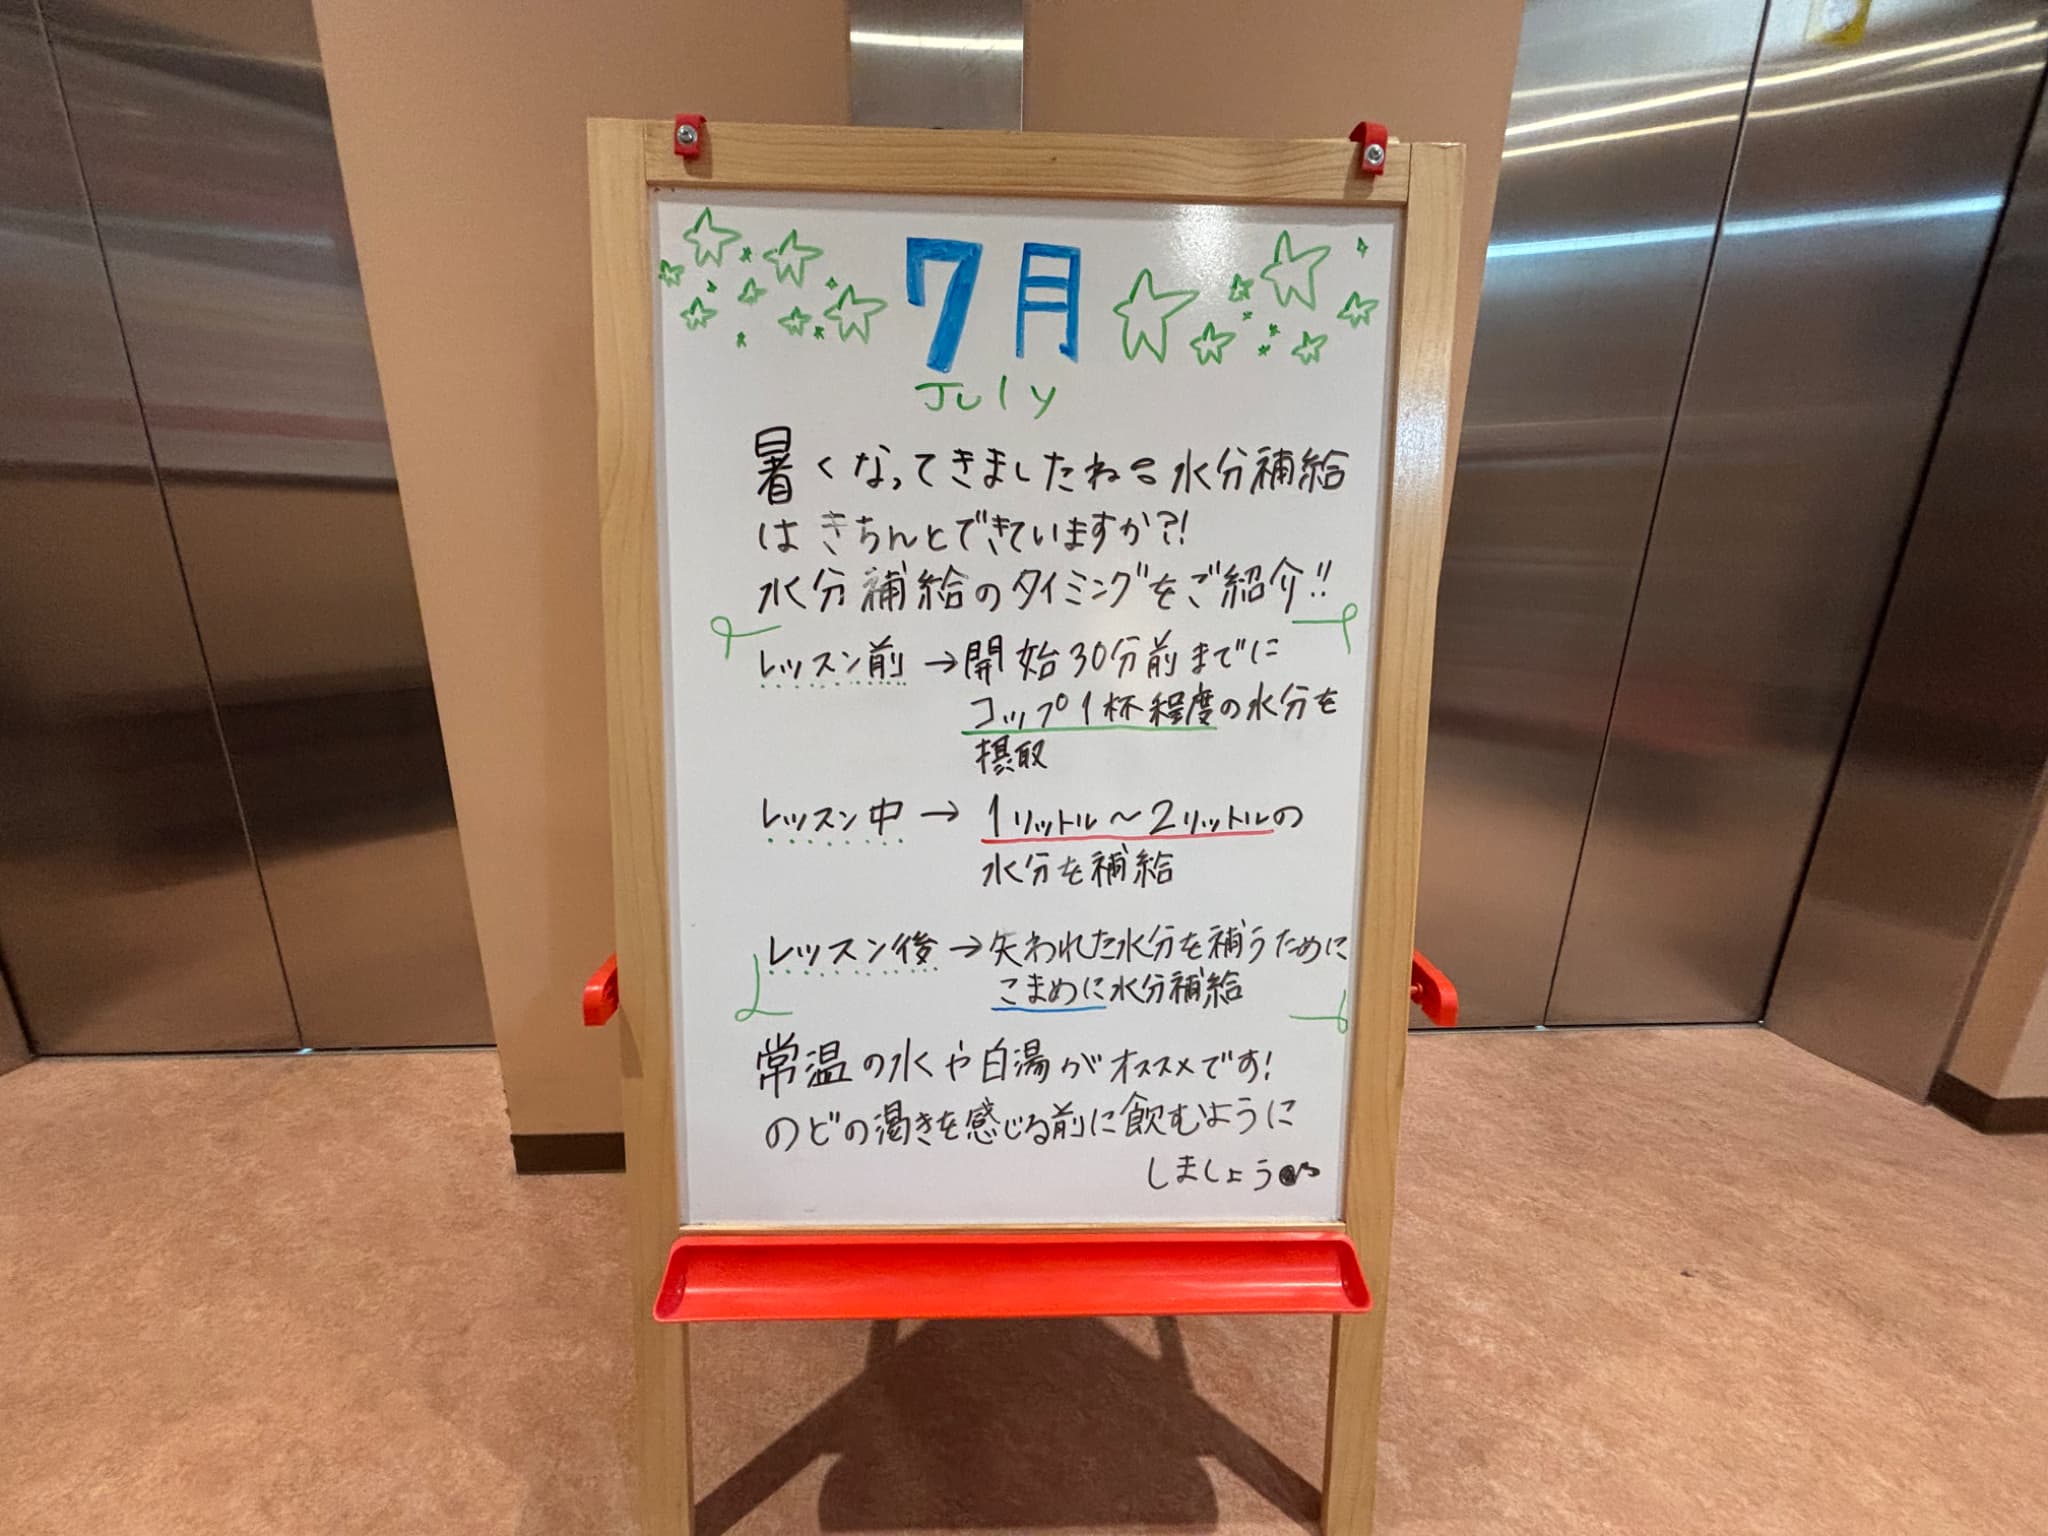 7月
July
暑くなってきましたね。水分補給
はきちんとできていますか?!
水分補給のタイミングをご紹介!!
レッスン前→開始30分前までに
コップ1杯程度の水分を
摂取
レッスン中→1リットル～2リットルの
水分を補給
レッスン後→失われた水分を補うために
こまめに水分補給
常温の水や白湯がオススメです!
のどの渇きを感じる前に飲むように
しましょう